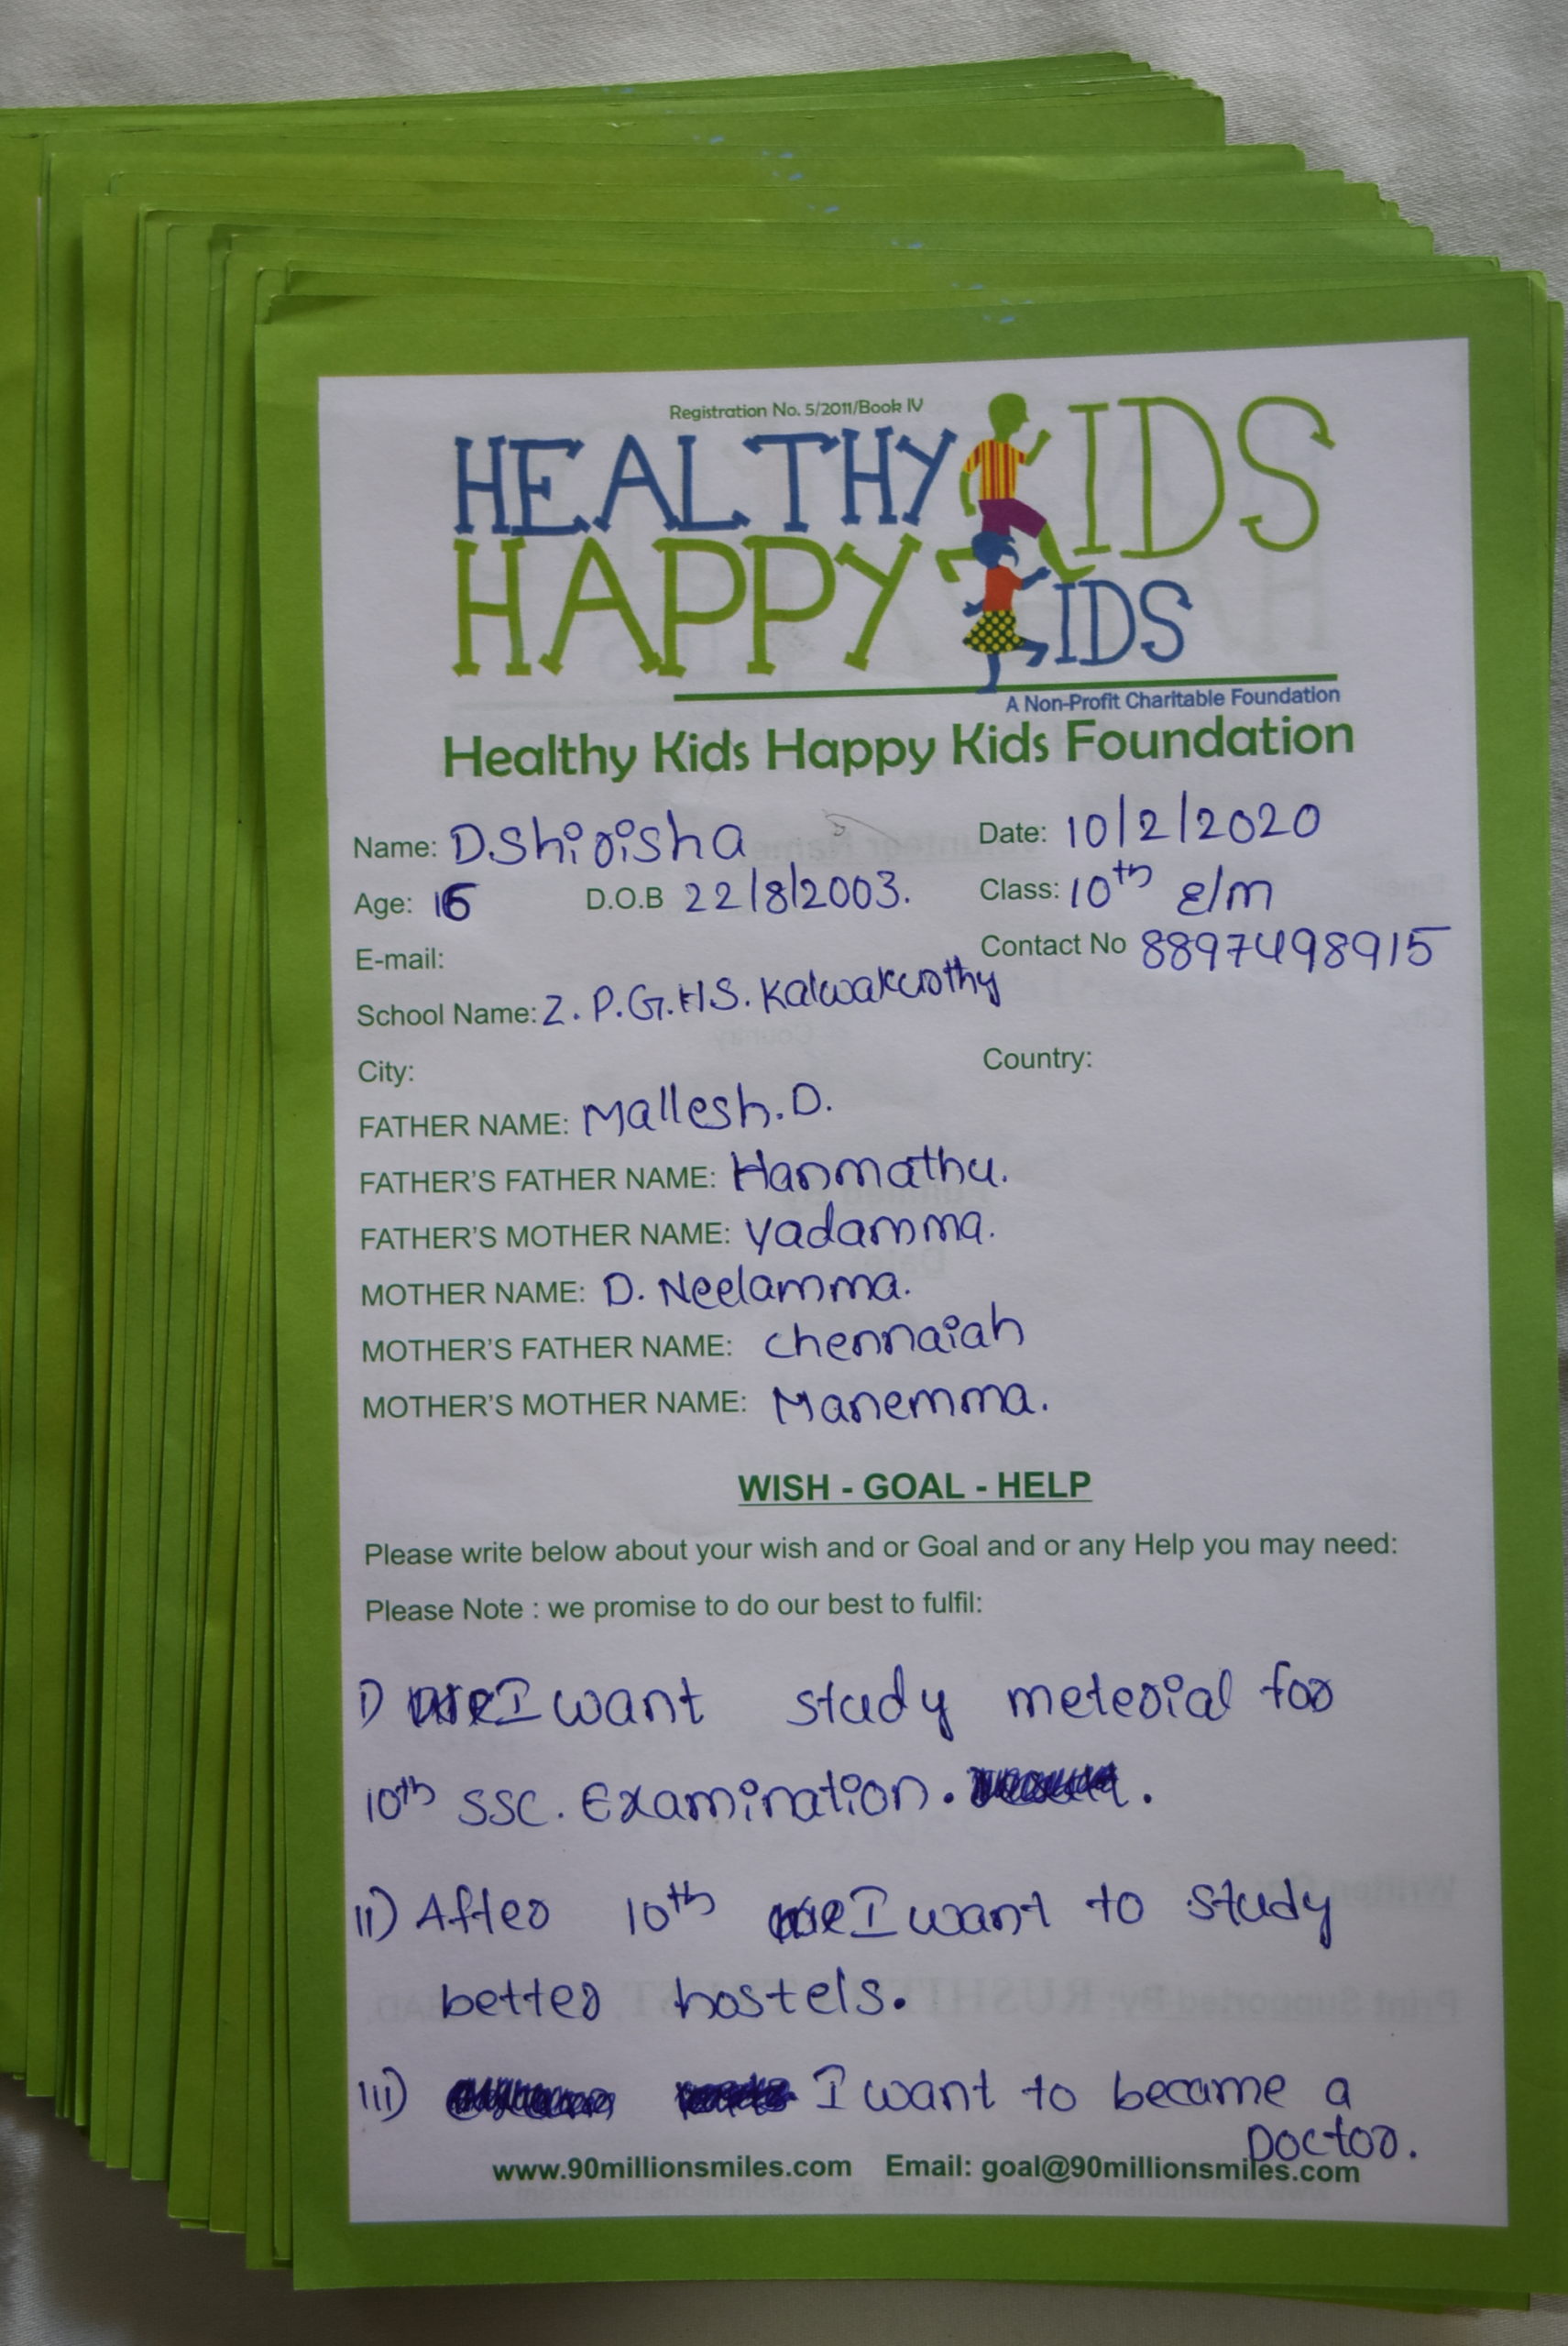 Registration No. 5/2011/Book IV
HEALTHY KIDS
HAPPY KIDS
A Non-Profit Charitable Foundation
Healthy Kids Happy Kids Foundation
Name: D.Shirisha Date: 10/2/2020
Age: 16 D.O.B 22/8/2003. Class: 10th E/m
E-mail: Contact No 8897498915
School Name: Z.P.G.H.S. Kalwakurthy
City: Country:
FATHER NAME: Mallesh.D.
FATHER'S FATHER NAME: Hanmathu.
FATHER'S MOTHER NAME: Yadamma.
MOTHER NAME: D. Neelamma.
MOTHER'S FATHER NAME: chennaiah
MOTHER'S MOTHER NAME: Manemma.
WISH - GOAL - HELP
Please write below about your wish and or Goal and or any Help you may need:
Please Note : we promise to do our best to fulfil:
I) I want study meterial for
10th SSC. Examination.
II) After 10th I want to study
better hostels.
III) I want to became a
Doctor.
www.90millionsmiles.com Email: goal@90millionsmiles.com